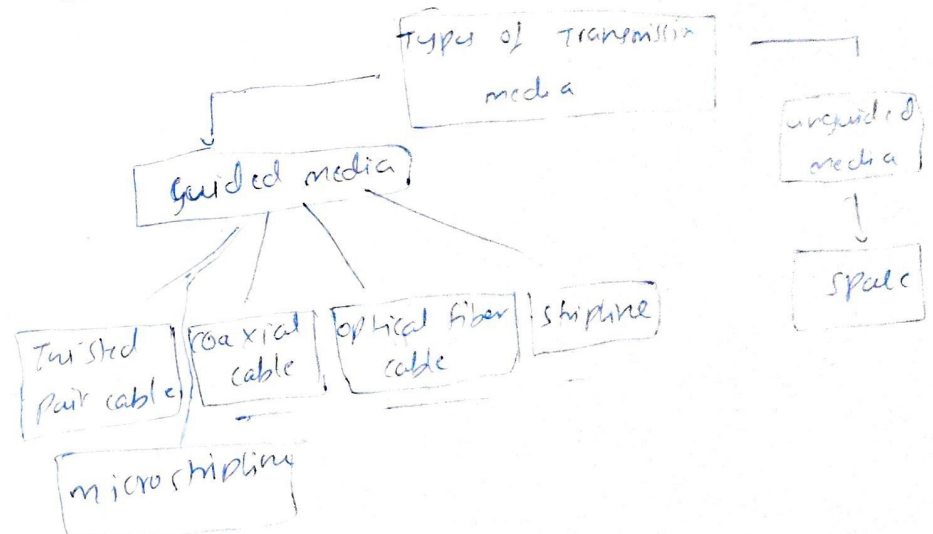 Types of Transmissin
media
unguided
media
Guided media
space
Twisted
pair cable
coaxial
cable
optical fiber
cable
stripline
microstripline